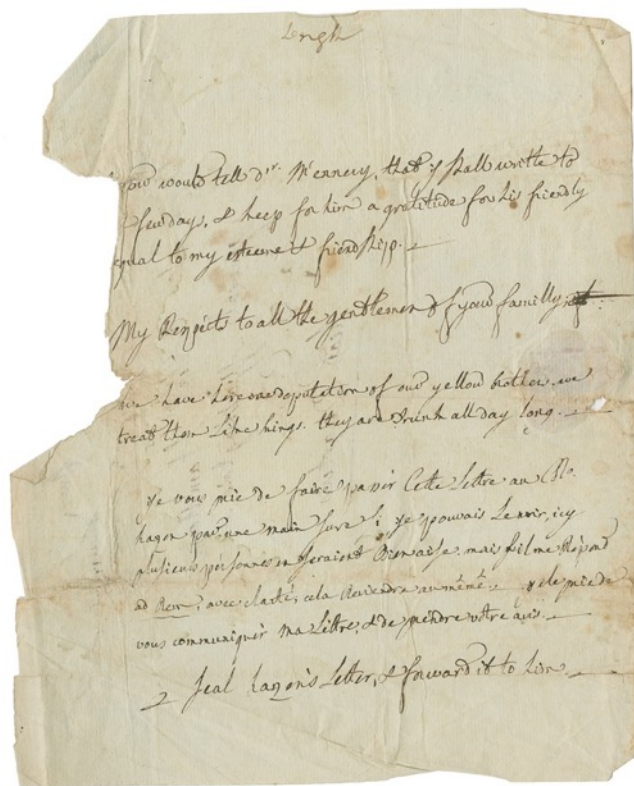 Lengh
you would tell dr. Mcennery, that y shall writte to
few day, & keep for him a gratitude for his friendly
equal to my esteeme & friendship. —
My Respects to all the gentlemen of your familly
we have here one deputation of our yellow brother. we
treat them Like kings. they are drunk all day long. —
je vous prie de faire passer Cette Lettre au
hazon par une main sure. Si je pouvais Le voir, icy
plusieurs personnes en seraient Bien aise. mais s'il me Répond
ad Rem, avec clarté, cela Reviendra au même. je le prie de
vous communiquer ma Lettre, & de prendre votre avis. —
Seal hazon's Letter, & forward it to him. —